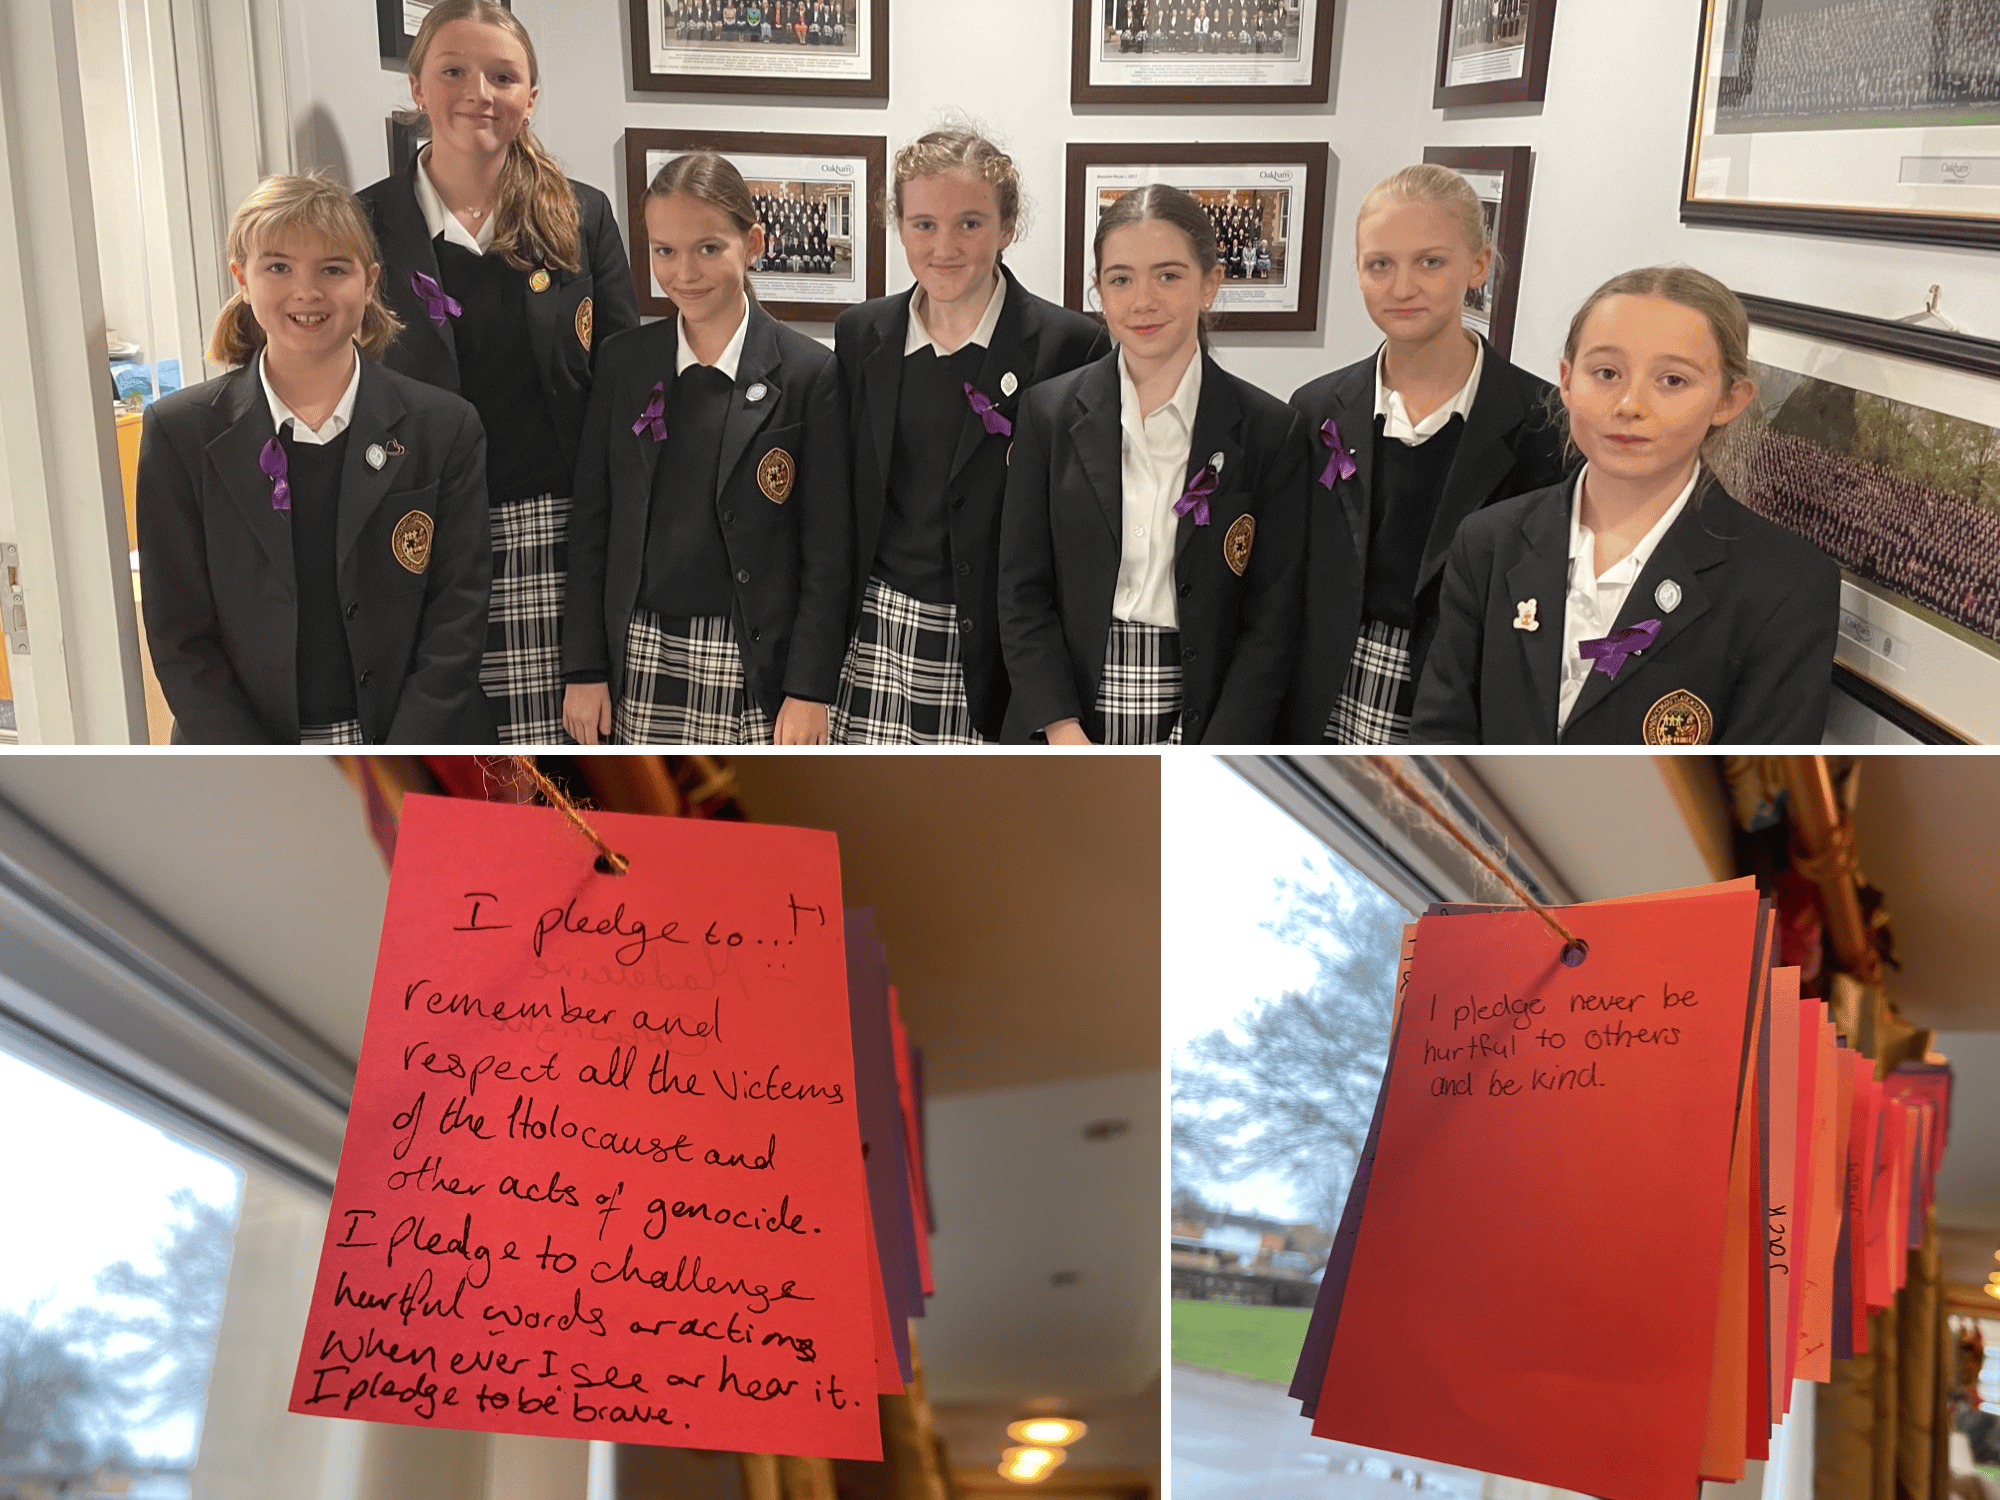 Oakham
Oakham
Oakham
Oakham
I pledge to...
remember and
respect all the victems
of the Holocaust and
other acts of genocide.
I pledge to challenge
hurtful words or actions
when ever I see or hear it.
I pledge to be brave.
I pledge never be
hurtful to others
and be kind.
Jack